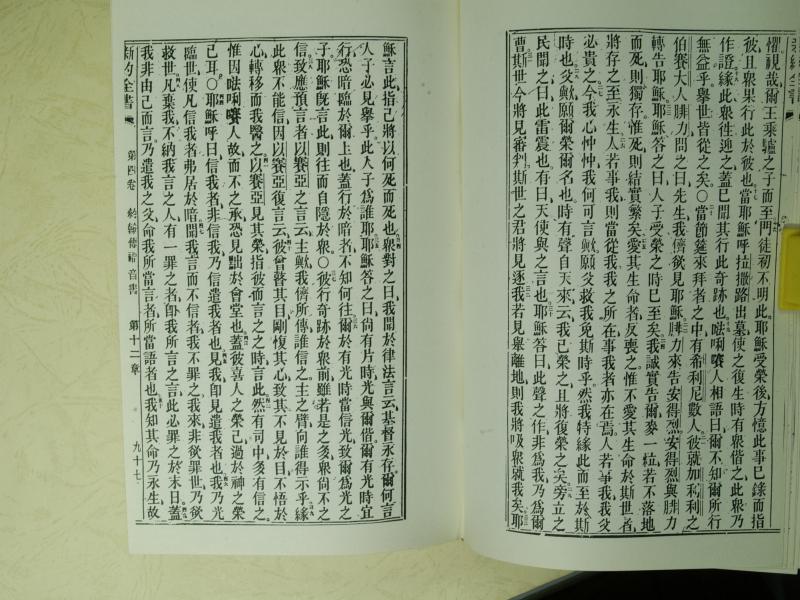 懼視哉爾王乘驢之子而至門徒初不明此耶穌受榮後方憶此事已錄而指
彼且眾果行此於彼也當耶穌呼拉撒路出墓使之復生時有眾偕之此眾乃
作證緣此眾往迎之蓋已聞其行此奇跡也㗎唎人相語曰爾不知爾所行
無益乎舉世皆從之矣〇當節筵來拜者之中有希利尼數人彼就加利利之
伯賽大人腓力問之曰先生我儕欲見耶穌腓力來告安得烈安得烈與腓力
轉告耶穌耶穌答之曰人子受榮之時已至矣我誠實告爾麥一粒若不落地
而死則獨存惟死則結實繁矣愛其生命者反喪之惟不愛其生命於斯世者
將存之至永生人若事我則當從我我之所在事我者亦在焉人若事我我父
必貴之今我心忡忡我何可言歟願父救我免斯時乎然我特緣此而至於斯
時也父歟願爾榮爾名也時有聲自天來云我已榮之且將復榮之矣旁立之
民聞之曰此雷震也有曰天使與之言也耶穌答曰此聲之作非爲我乃爲爾
曹斯世今將見審判斯世之君將見逐我若見舉離地則我將吸眾就我矣耶
穌言此指己將以何死而死也眾對之曰我聞於律法言云基督永存爾何言
人子必見舉乎此人子爲誰耶耶穌答之曰尙有片時光與爾偕爾有光時宜
行恐暗臨於爾上也蓋行於暗者不知何往爾於有光時當信光致爾爲光之
子耶穌旣言此則往而自隱於眾〇彼行奇跡於眾前雖若是之多眾尙不之
信致應預言者以賽亞之言云主歟我儕所傳誰信之主之臂向誰得示乎緣
此眾不能信因以賽亞復言云彼曾瞽其目剛愎其心致其不見於目不悟於
心轉移而我醫之以賽亞見其榮指彼而言之之時言此然有司中多有信之
惟因㗎唎人故而不之承恐見黜於會堂也蓋彼喜人之榮己過於神之榮
己耳〇耶穌呼曰信我者非信我乃信遣我者也見我卽見遣我者也我乃光
臨世使凡信我者弗居於暗聞我言而不信者我不罪之我來非欲罪世乃欲
救世凡棄我不納我言之人有一罪之者卽我所言之言此必罪之於末日蓋
我非由己而言乃遣我之父命我所當言者所當語者也我知其命乃永生故
新約全書 第四卷 約翰傳福音書 第十二章 九十七